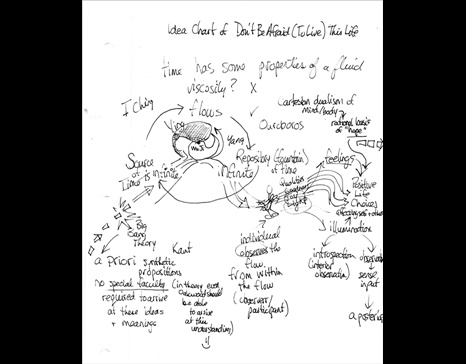 Idea Chart of Don't Be Afraid (To Live) This Life
time has some properties of a fluid
viscosity? x
I Ching
flows
Ying
Yang
Ouroboros
Cartesian dualism of
mind/body
rational basis
of "hope"
Source of
Time is infinite
Repository (fountain)
of time
infinite
feelings
Positive
Life
Choices
illumination
Big
Bang
Theory
Kant
a priori synthetic
propositions
no special faculty
required to arrive
at these ideas
+ meanings
(in theory everyone
should be
able to
arrive
at this
understanding)
individual
observes the
flow
from within
the flow
(observer/
participant)
introspection
(interior
observation)
observation
sense
input
a posteriori